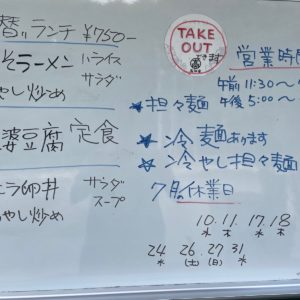 替りランチ ¥750-
そラーメン 半ライス
サラダ
やし炒め
婆豆腐 定食
ニラ卵丼 サラダ
スープ
やし炒め
TAKE
OUT
できます
営業時間
午前 11:30〜
午後 5:00〜
★担々麺
★冷麺あります
★冷やし担々麺
7月の休業日
10. 11. 17. 18
水 木 水 木
24 26. 27 31
水 (土) (日) 水